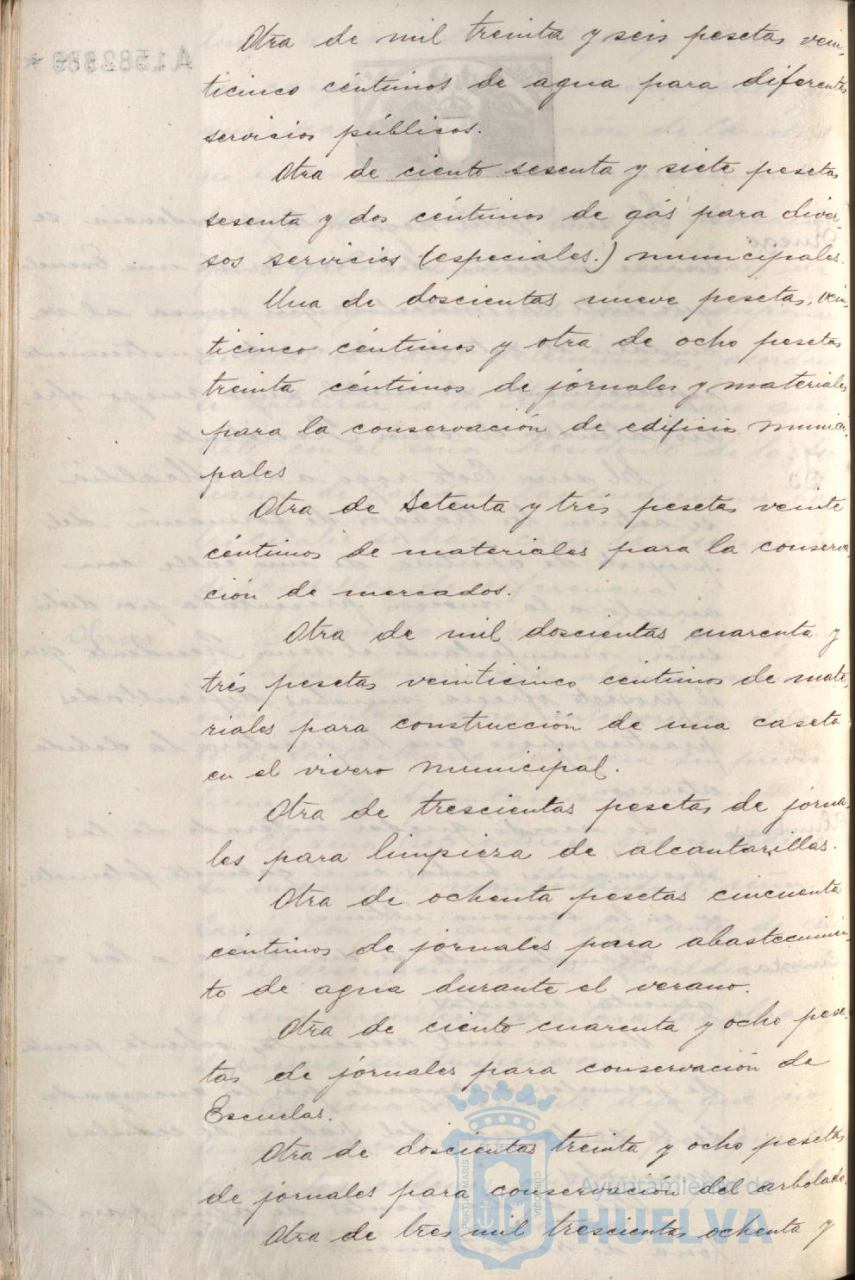 Otra de mil treinta y seis pesetas vein-
ticinco céntimos de agua para diferentes
servicios públicos.
Otra de ciento sesenta y siete pesetas
sesenta y dos céntimos de gás para diver-
sos servicios (especiales.) municipales.
Una de doscientas nueve pesetas, vein-
ticinco céntimos y otra de ocho pesetas
treinta céntimos de jornales y materiales
para la conservación de edificios munici-
pales
Otra de Setenta y trés pesetas veinte
céntimos de materiales para la conserva-
ción de mercados.
Otra de mil doscientas cuarenta y
trés pesetas veinticinco céntimos de mate-
riales para construcción de una caseta
en el vivero municipal.
Otra de trescientas pesetas de jorna-
les para limpieza de alcantarillas.
Otra de ochenta pesetas cincuenta
céntimos de jornales para abastecimien-
to de agua durante el verano.
Otra de ciento cuarenta y ocho pese-
tas de jornales para conservación de
Escuelas.
Otra de doscientas treinta y ocho pesetas
de jornales para conservación del arbolado.
Otra de tres mil trescientas ochenta y
Ayuntamiento de
HUELVA